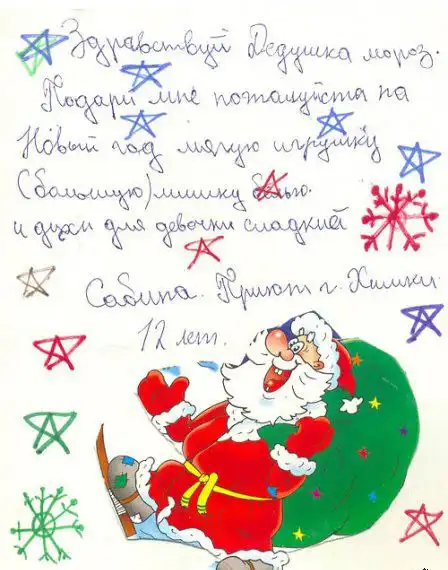 Здравствуй Дедушка мороз.
Подари мне пожалуйста на
Новый год мягкую игрушку
(большую) мишку белую.
и духи для девочки сладкий
Сабина. Приют г. Химки
12 лет.